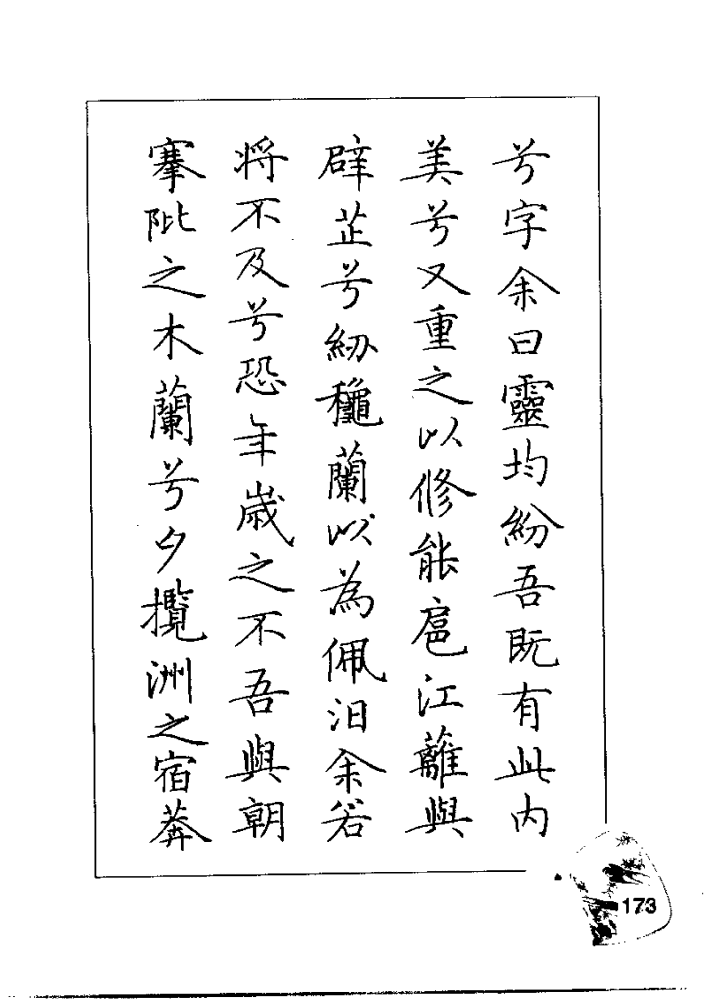 兮字余曰靈均紛吾既有此內
美兮又重之以修能扈江蘺與
辟芷兮紉穐蘭以為佩汩余若
將不及兮恐年歲之不吾與朝
搴阰之木蘭兮夕攬洲之宿莽
173